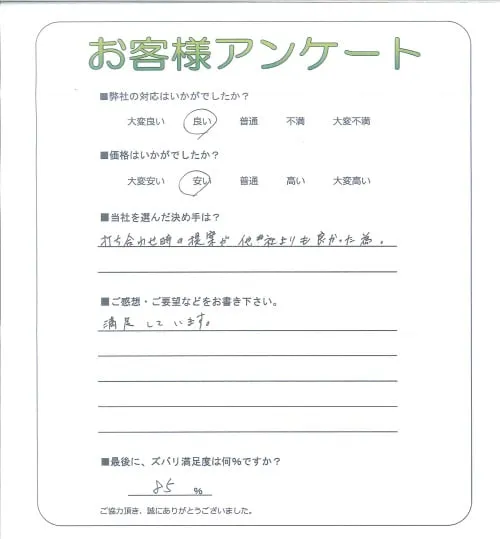 お客様アンケート
■弊社の対応はいかがでしたか?
大変良い 良い 普通 不満 大変不満
■価格はいかがでしたか?
大変安い 安い 普通 高い 大変高い
■当社を選んだ決め手は?
打ち合わせ時の提案が他社よりも良かった為。
■ご感想・ご要望などをお書き下さい。
満足しています。
■最後に、ズバリ満足度は何%ですか?
85 %
ご協力頂き、誠にありがとうございました。